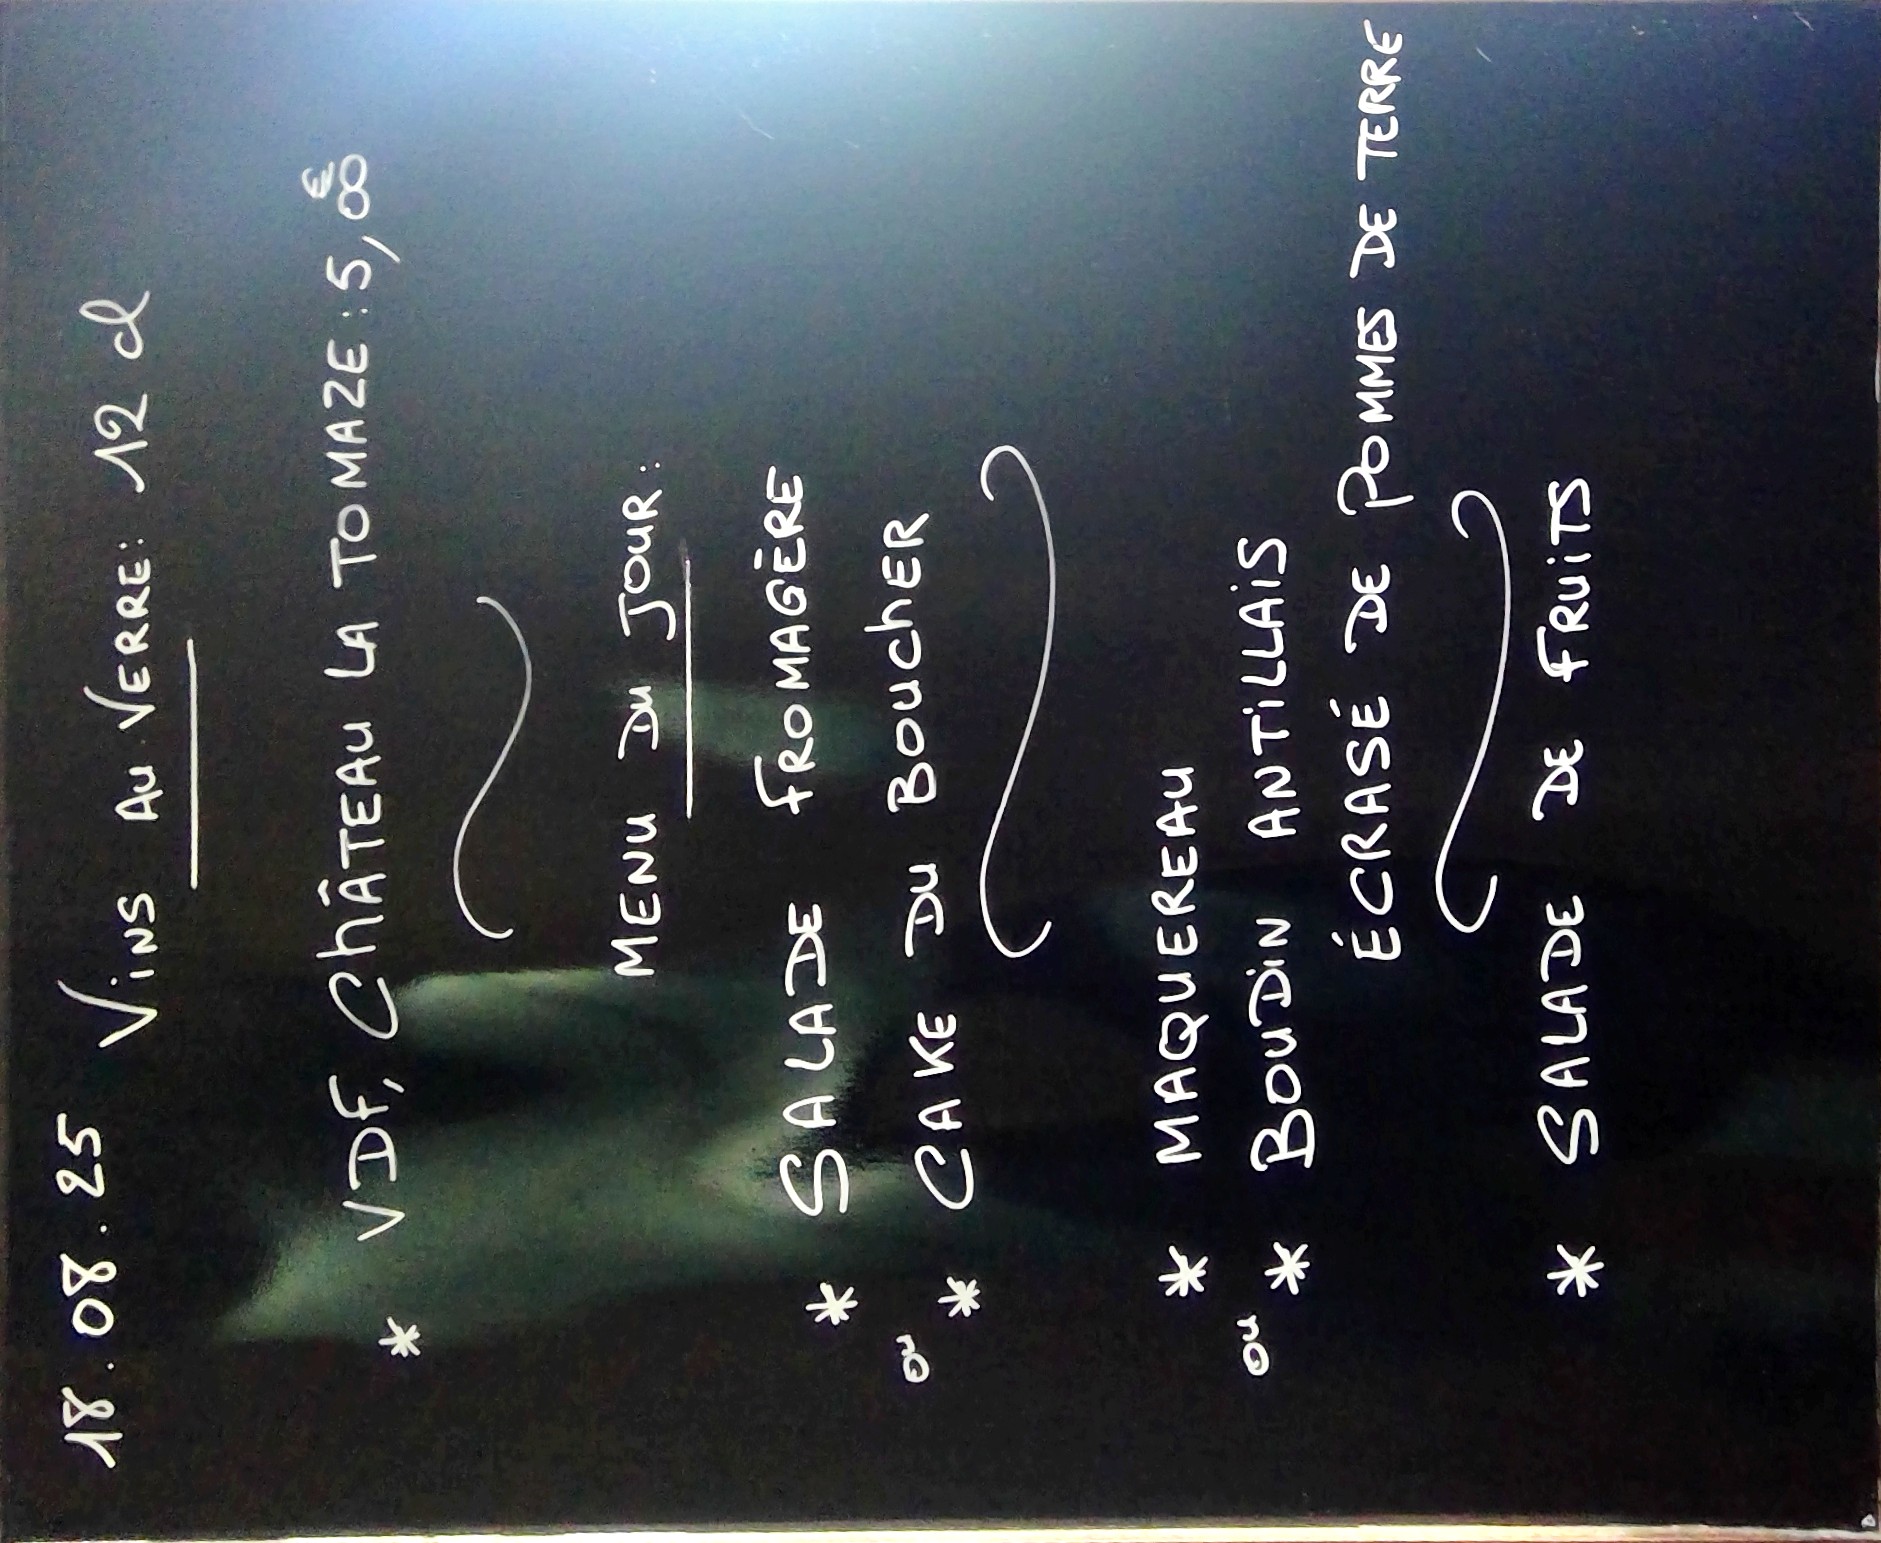 18.08.25 Vins Au Verre: 12 cl
* VDF, Château LA TOMAZE: 5,00€
MENU DU JOUR:
* SALADE FROMAGÈRE
ou
* CAKE DU BOUCHER
* MAQUEREAU
ou
* BOUDIN ANTILLAIS
ÉCRASÉ DE POMMES DE TERRE
* SALADE DE FRUITS